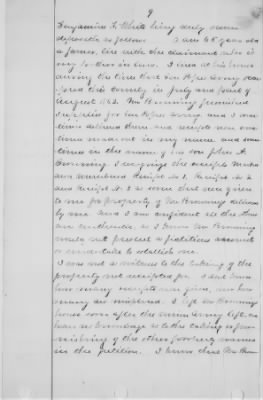 9
Benjamin F. White being duly sworn
deposeth as follows I am 65 years old
a farmer, live with the claimant who is
my brother in law. I lived at his house
during the time that Gen Popes Army occu
pied this county in July and part of
August 1862. Mr Browning furnished
supplies for Gen Popes Army, and I some
times delivered them and receipts were some
times made out in my name and some
times in the name of his son John A.
Browning I recognize the receipts marked
and numbered Receipt No 1, Receipt No 2
and Receipt No 3 as some that were given
to me for property of Mr Browning delivered
by me and I am confident all the others
are authentic as I know Mr Browning
would not present a fictitious account
or undertake to establish one.
I was not a witness to the taking of the
property not receipted for. I dont know
how many receipts were given, nor how
many are misplaced. I left Mr Brownings
house soon after the Union Army left, so
have no knowledge as to the taking or fur
nishing of the other property named
in the petition. I know that Mr Brown